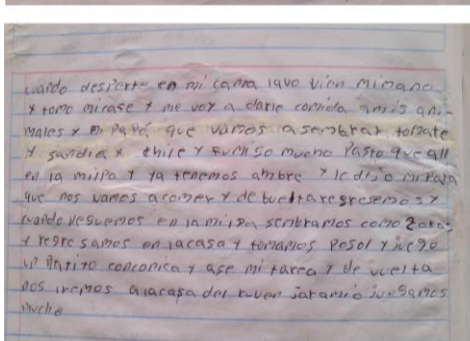 cuando desperte en mi cama lavo vien mi mano
y tomo mi case y me voy a darle comida a mis ani-
males y mi Papá que vamos a sembrar tomate
y sandia y chile y mucho Pasto que all
en la milpa y ya tenemos ambre y le dijo mi Papa
que nos vamos a comer y de bueltaregresemos y
cuando yeguemos en la milpa sembramos como
y regresamos en la casa y tomamos Posol y juego
un Ratito con conica y ase mi tarea y de vuelta
nos iremos a la casa del ruven jaramio juegamos
mucho